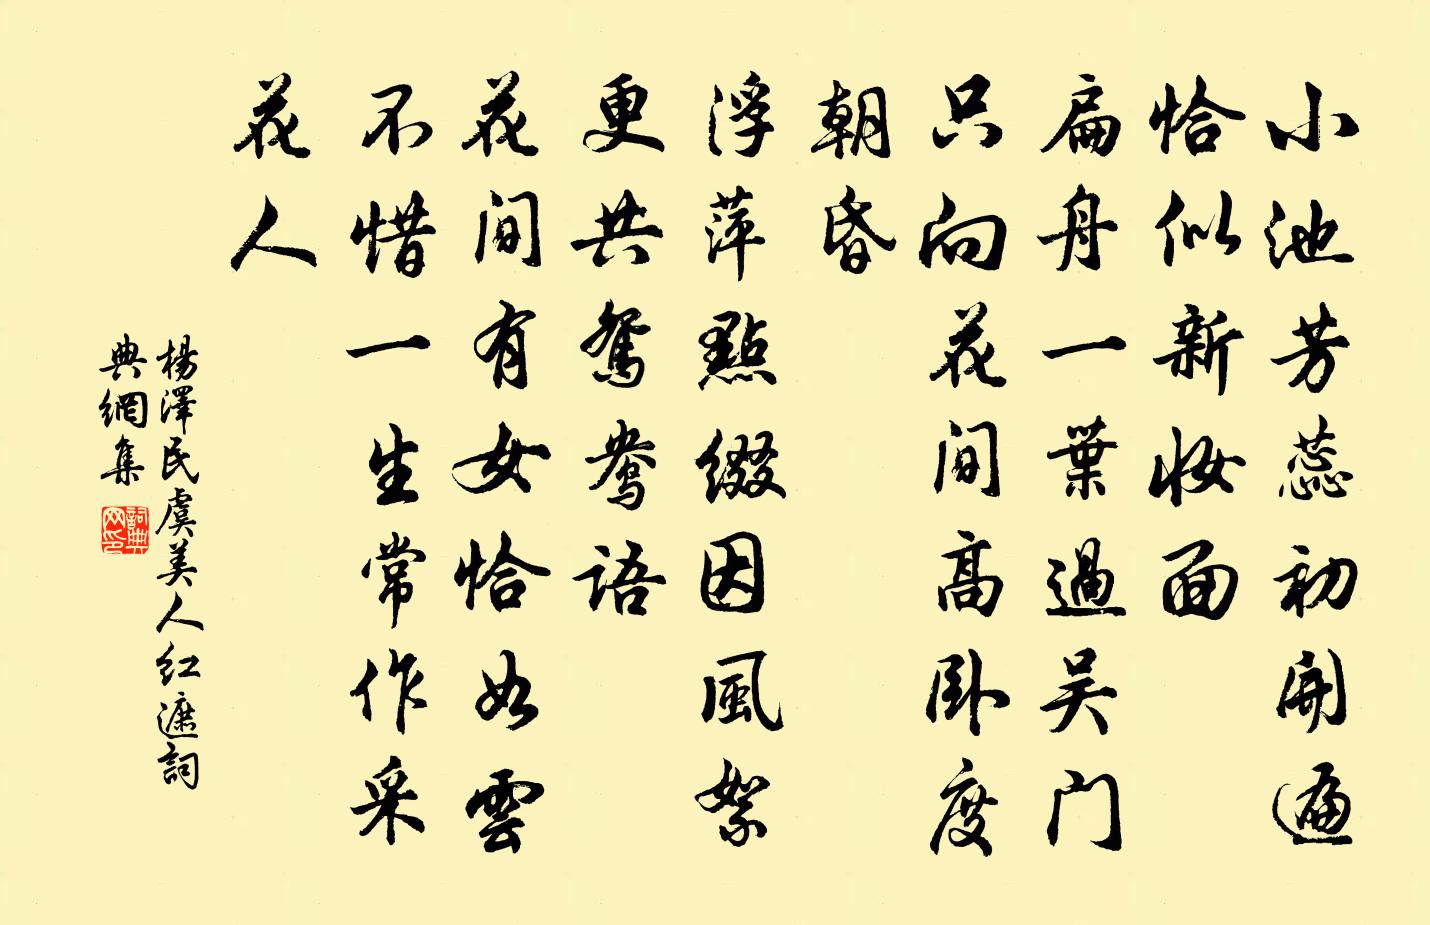 小池芳蕊初開遍
恰似新妝面
扁舟一葉過吴门
只向花间高卧度
朝昏
浮萍點綴因風絮
更共鴛鴦語
花间有女恰如雲
不惜一生常作采
花人
楊澤民虞美人红蓮詞
典網集
詞典網印